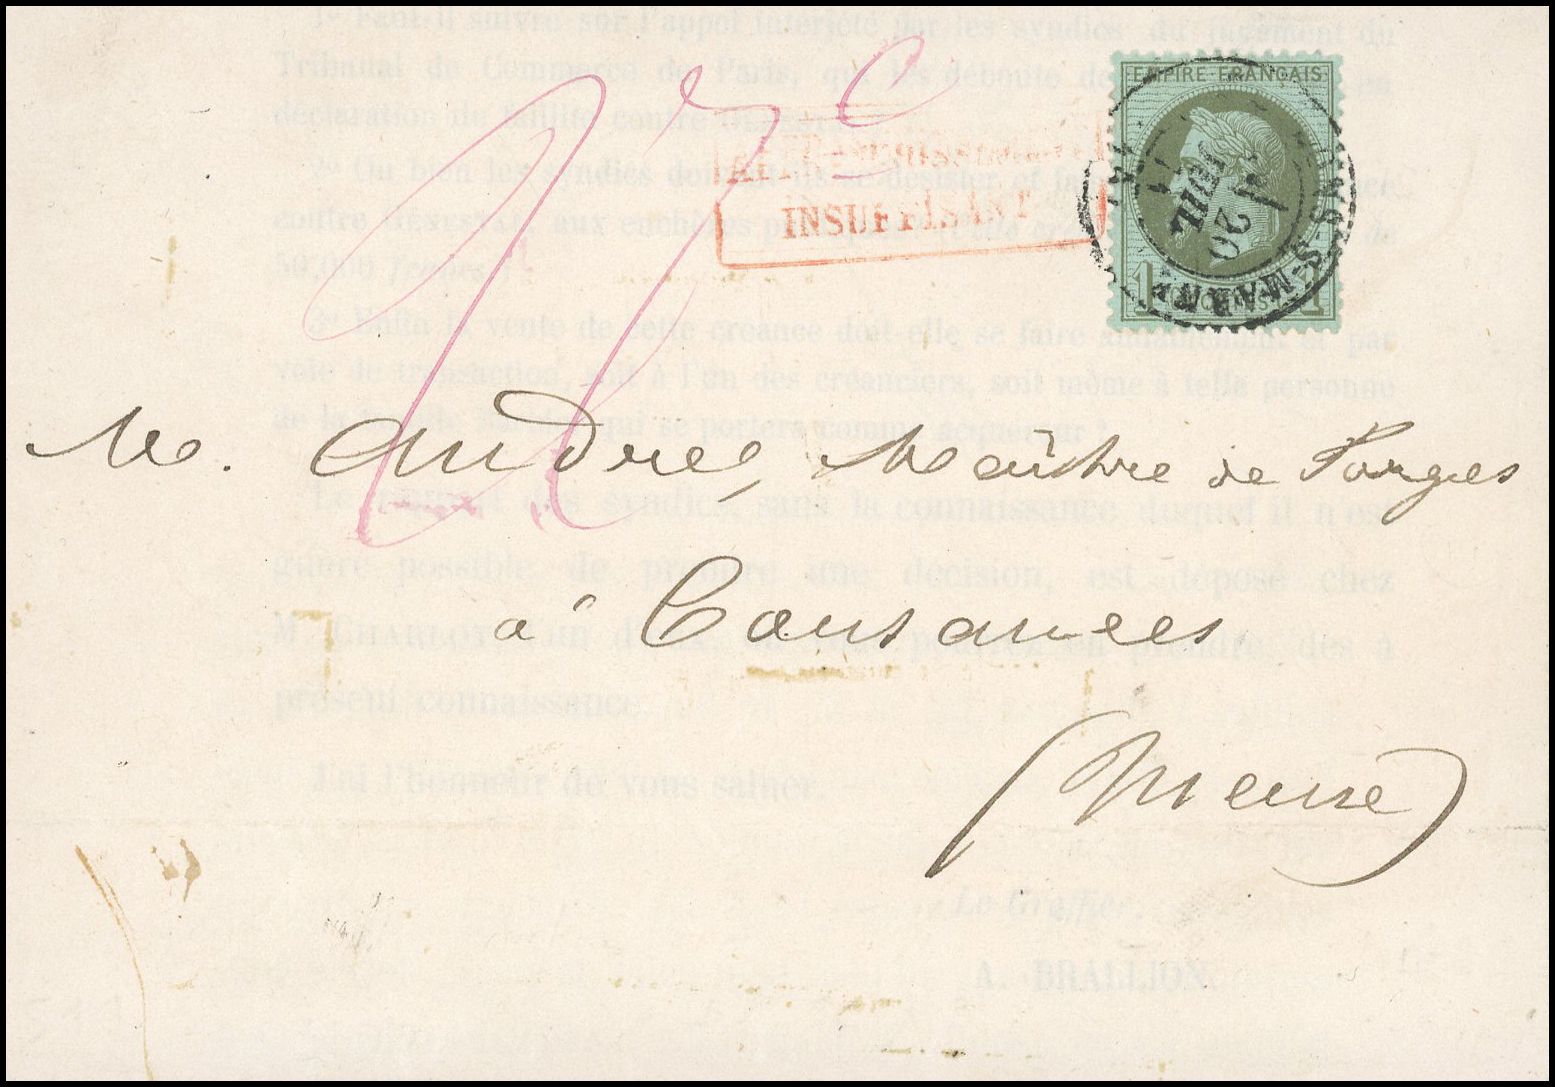 1° Faut-il suivre sur l'appel interjeté par les syndics du jugement du
Tribunal de Commerce de Paris, qui les déboute de
déclaration de faillite contre GENESTAL ?
2° Ou bien les syndics doivent-ils se désister et
contre GENESTAL, aux enchères
50,000 francs)
3° Enfin la vente de cette créance doit-elle se faire amiablement et par
voie de transaction, soit à l'un des créanciers, soit même à telle personne
de la qui se portera comme acquéreur ?
Le rapport des syndics, sans la connaissance duquel il n'est
guère possible de prendre une décision, est déposé chez
M. CHARLOT l'un d'eux, où vous pourrez en prendre, dès à
présent connaissance.
J'ai l'honneur de vous saluer.
Le Greffier,
A. BRALLION.
EMPIRE FRANÇAIS
1
1
20
JUIL.
S-MARNE
AFFRANCHISSEMENT
INSUFFISANT
M. André, Maître de Forges
à Cousances
(Meuse)